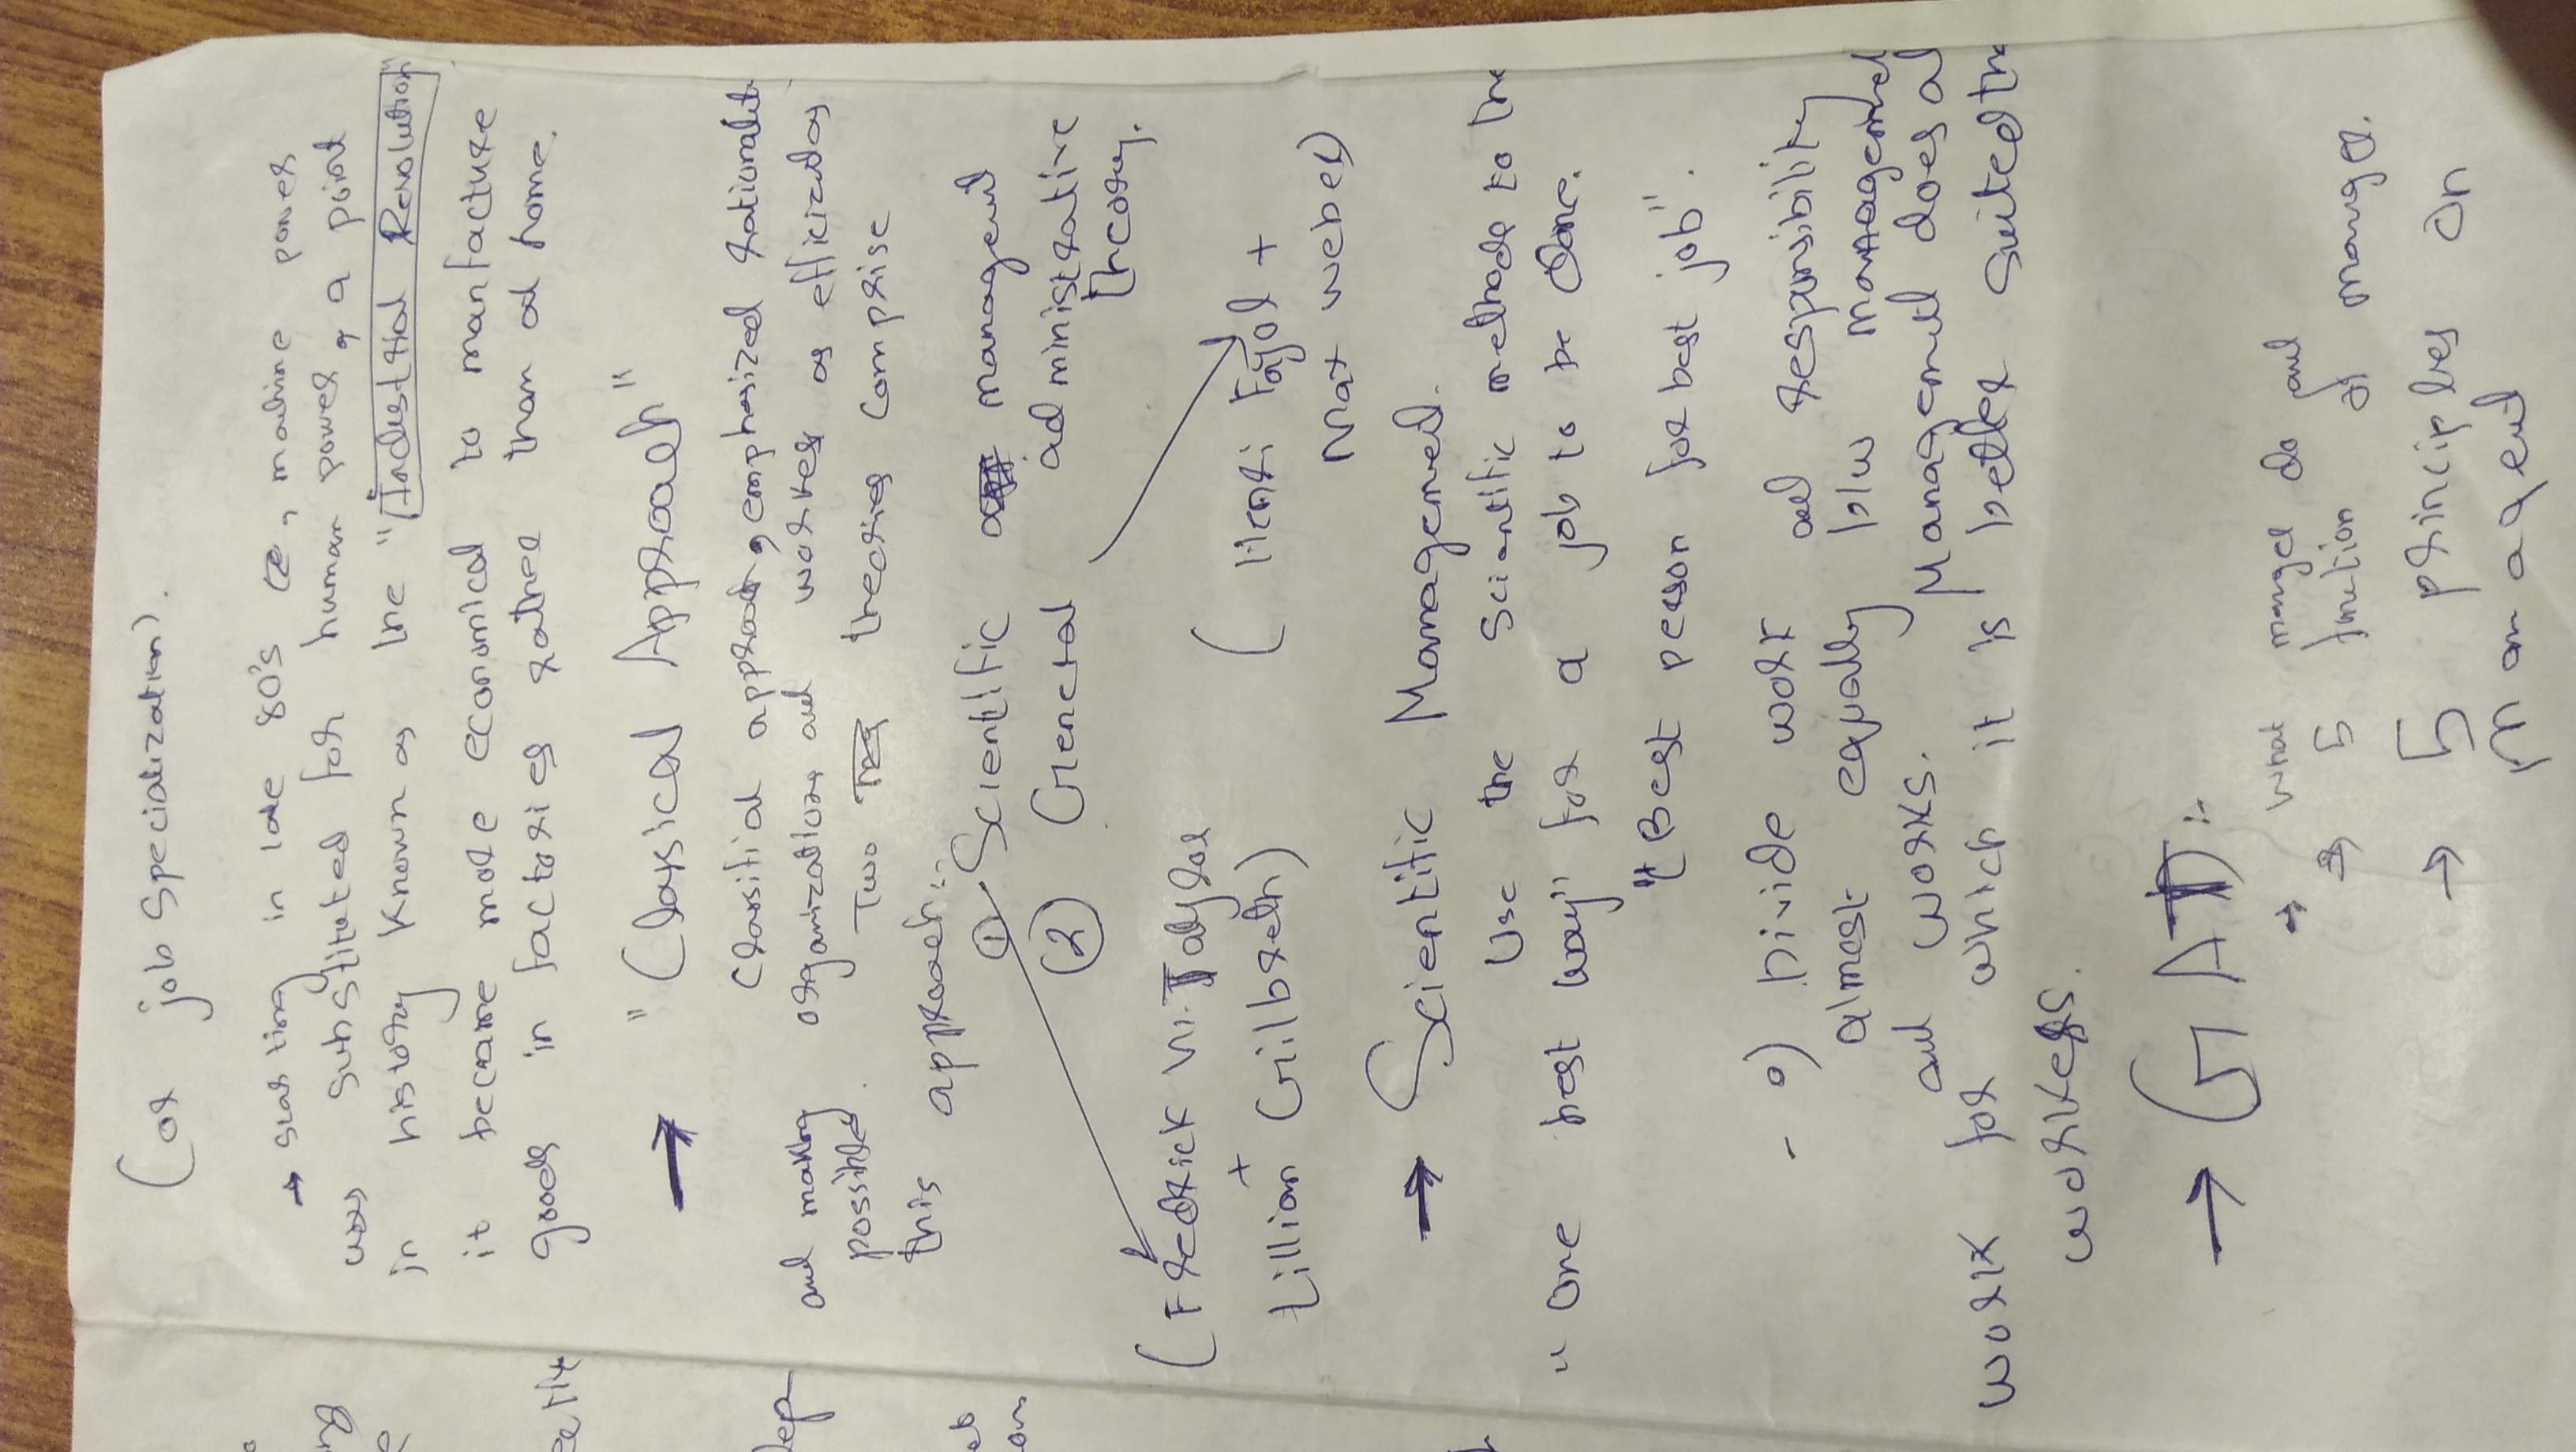 (or job Specialization).
→ starting in late 80's , machine power
was substituted for human power, a point
in history known as the "Industrial Revolution"
it became more economical to manfacture
goods in factories rather than at home.
→ "Classical Approach"
Classifial approach, emphasized rationalit
and making organizations and workers as efficiently as
possible. Two theories comprise
this approach:-
① Scientific management
② General administrative
theory.
(Fredrick W. Taylor
+
Lillian Gilbreth)
(Henri Fayol +
Max Weber)
→ Scientific Management.
Use the Scientific methods to the
"one best way" for a job to be done.
"(Best person for best job".
- o) Divide work and responsibility
almost equally b/w management
and works. Management does al
work for which it is better suited tha
workers.
→ GAT:-
→ What manger do and
→ 5 function of manger.
→ 5 principles on
Managent